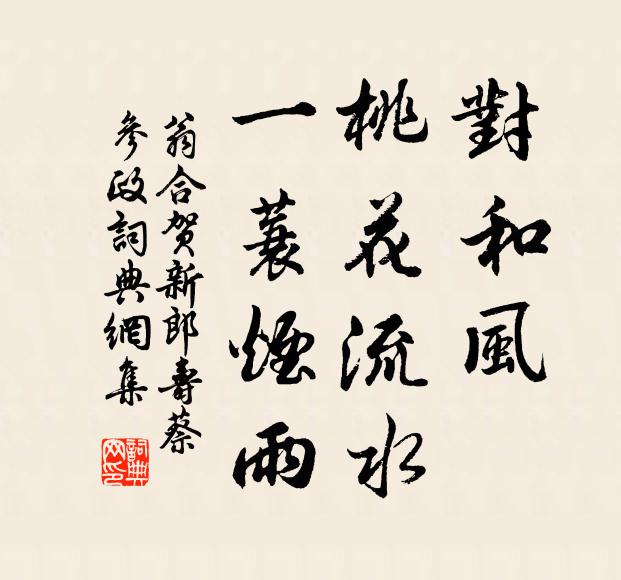 對和風
桃花流水
一蓑煙雨
翁合賀新郎壽蔡
參政詞典網集
詞典
网印